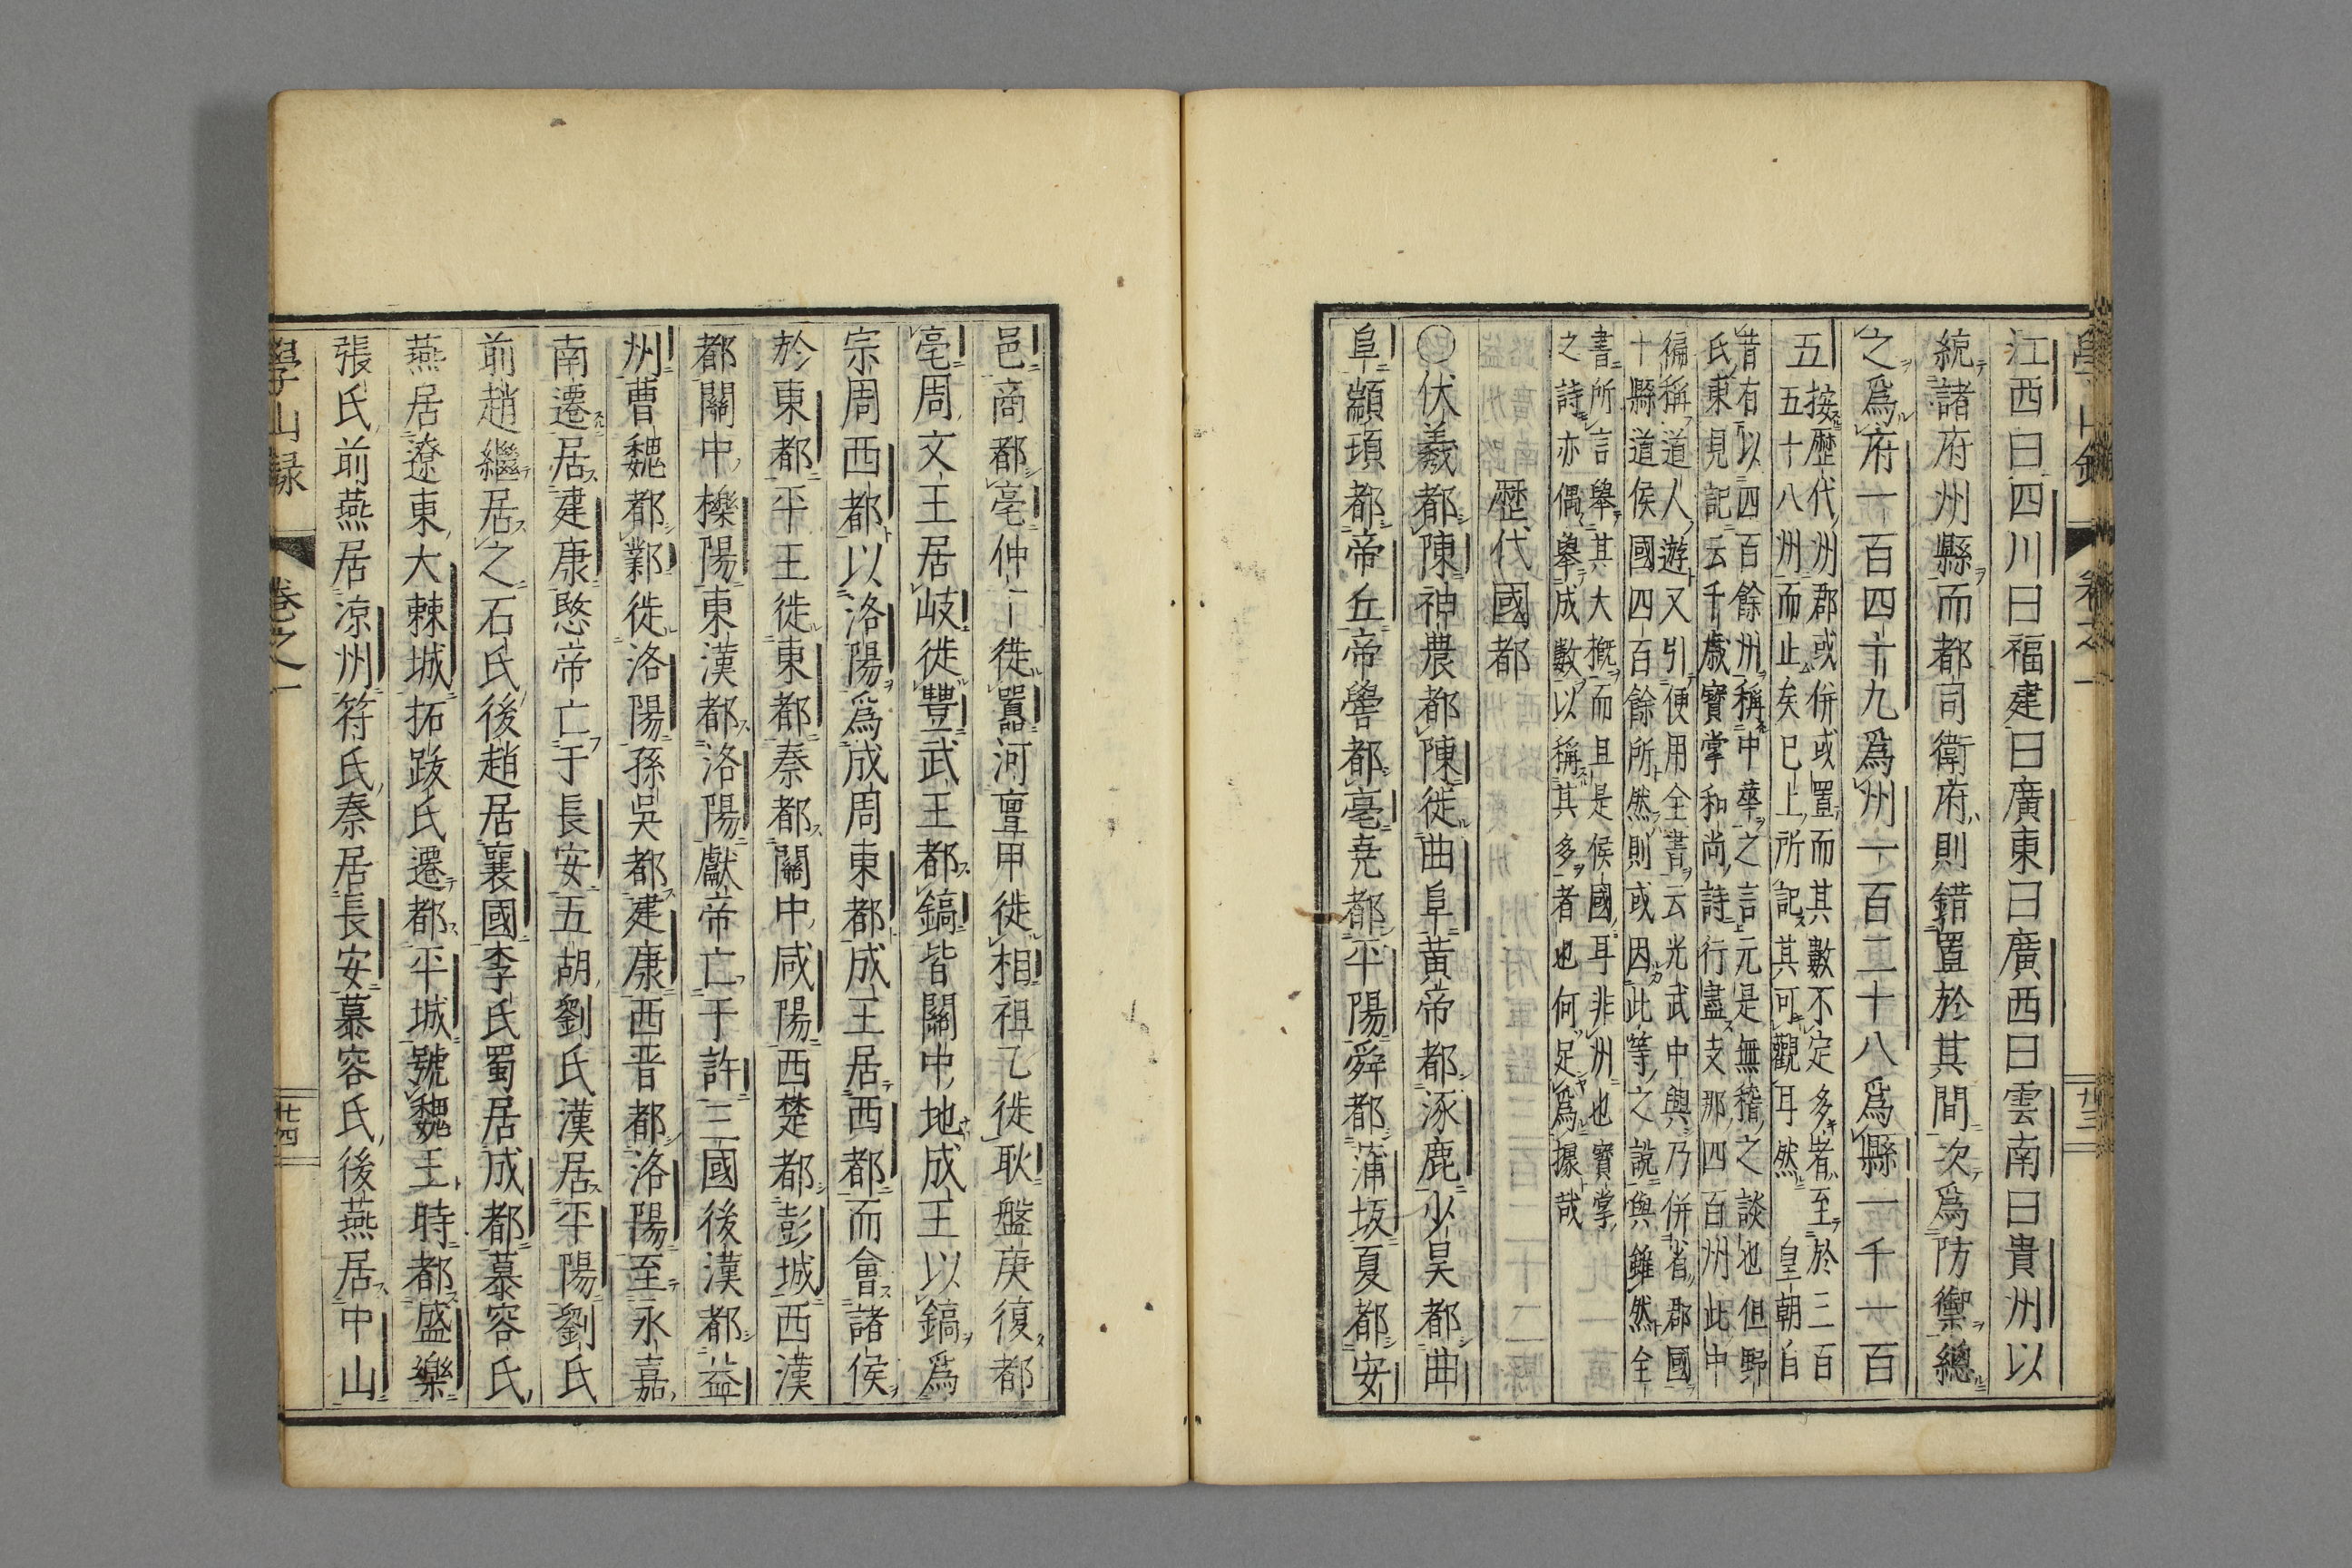 江西曰四川曰福建曰廣東曰廣西曰雲南曰貴州以
統諸府州縣而都司衛府則錯置於其間次爲防禦總
之爲府一百四十九爲州一百二十八爲縣一千一百
五
按歷代州郡或併或置而其數不定多者至於三百
五十八州而止矣已上所記其可觀耳然 皇朝自
昔有以四百餘州稱中華之言元是無稽之談也但野
氏東見記云千歳寶掌和尚詩行盡支那四百州此中
徧稱道人遊又引便用全書云光武中興乃併省郡國
十縣道侯國四百餘所然則或因此等之說與雖然全
書所言舉其大概而且是侯國耳非州也寶掌
之詩亦偶舉成數以稱其多者也何足爲據哉
歷代國都
○伏羲都陳神農都陳徙曲阜黃帝都涿鹿少昊都曲
阜顓頊都帝丘帝嚳都亳堯都平陽舜都蒲坂夏都安
學山錄 卷之一 廿三
邑商都亳仲丁徙囂河亶甲徙相祖乙徙耿盤庚復都
亳周文王居岐徙豐武王都鎬皆關中地成王以鎬爲
宗周西都以洛陽爲成周東都成王居西都而會諸侯
於東都平王徙東都秦都關中咸陽西楚都彭城西漢
都關中櫟陽東漢都洛陽獻帝亡于許三國後漢都益
州曹魏都鄴徙洛陽孫吳都建康西晉都洛陽至永嘉
南遷居建康愍帝亡于長安五胡劉氏漢居平陽劉氏
前趙繼居之石氏後趙居襄國李氏蜀居成都慕容氏
燕居遼東大棘城拓跋氏遷都平城號魏王時都盛樂
張氏前燕居凉州符氏秦居長安慕容氏後燕居中山
學山録 卷之一 廿四